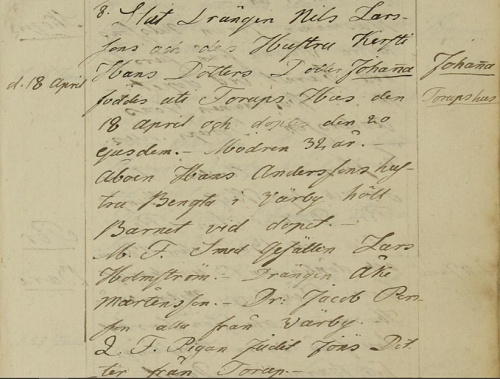 8. Stat Drängen Nils Lars-
sons och des Hustru Kersti
Hans Dotters Dotter Johana̅
föddes uti Torups Hus den
18 april och döptes den 20
ejusdem. - Modren 32 år. -
Åboen Hans Anderssons hus-
tru Bengta i Värby höll
Barnet vid dopet. -
M. F. Smed Gesällen Lars
Holmström. - Drängen Åke
Mårtensson. - Dr: Jacob Per-
son alla från Värby.
Q. F. Pigan Judit Jöns Dot-
ter från Torup. -
d. 18 April
Johana̅
Torups hus